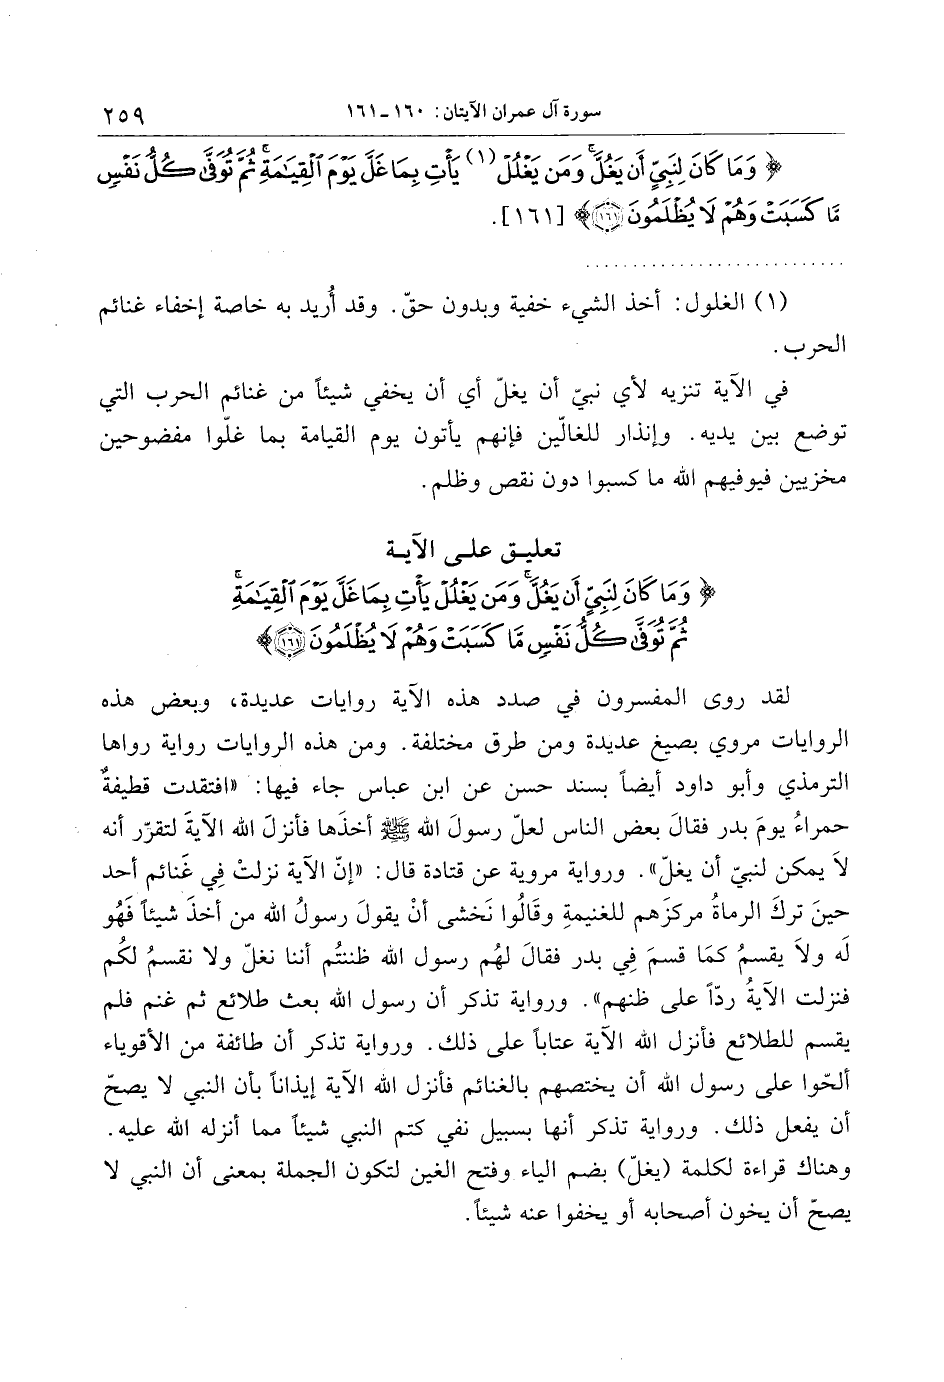 سورة آل عمران الآيتان: ١٦٠-١٦١ ٢٥٩
﴿ وَمَا كَانَ لِنَبِيٍّ أَن يَغُلَّۚ وَمَن يَغْلُلْ (١) يَأْتِ بِمَا غَلَّ يَوْمَ الْقِيَٰمَةِۚ ثُمَّ تُوَفَّىٰ كُلُّ نَفْسٍ
مَّا كَسَبَتْ وَهُمْ لَا يُظْلَمُونَ ١٦١﴾ [١٦١].
..........................
(١) الغلول: أخذ الشيء خفية وبدون حقّ. وقد أُريد به خاصة إخفاء غنائم
الحرب.
في الآية تنزيه لأي نبيّ أن يغلّ أي أن يخفي شيئاً من غنائم الحرب التي
توضع بين يديه. وإنذار للغالّين فإنهم يأتون يوم القيامة بما غلّوا مفضوحين
مخزيين فيوفيهم الله ما كسبوا دون نقص وظلم.
تعليق على الآية
﴿ وَمَا كَانَ لِنَبِيٍّ أَن يَغُلَّۚ وَمَن يَغْلُلْ يَأْتِ بِمَا غَلَّ يَوْمَ الْقِيَٰمَةِۚ
ثُمَّ تُوَفَّىٰ كُلُّ نَفْسٍ مَّا كَسَبَتْ وَهُمْ لَا يُظْلَمُونَ ١٦١﴾
لقد روى المفسرون في صدد هذه الآية روايات عديدة، وبعض هذه
الروايات مروي بصيغ عديدة ومن طرق مختلفة. ومن هذه الروايات رواية رواها
الترمذي وأبو داود أيضاً بسند حسن عن ابن عباس جاء فيها: «افتقدت قطيفةٌ
حمراءُ يومَ بدر فقالَ بعض الناس لعلّ رسولَ الله ﷺ أخذَها فأنزلَ الله الآيةَ لتقرّر أنه
لاَ يمكن لنبيّ أن يغلّ». ورواية مروية عن قتادة قال: «إنّ الآية نزلتْ فِي غَنائم أحد
حينَ تركَ الرماةُ مركزَهم للغنيمةِ وقَالُوا نَخشى أنْ يقولَ رسولُ الله من أخذَ شيئاً فَهُو
لَه ولاَ يقسمُ كمَا قسمَ فِي بدر فقالَ لهُم رسول الله ظننتُم أننا نغلّ ولا نقسمُ لكُم
فنزلت الآيةُ ردّاً على ظنهم». ورواية تذكر أن رسول الله بعث طلائع ثم غنم فلم
يقسم للطلائع فأنزل الله الآية عتاباً على ذلك. ورواية تذكر أن طائفة من الأقوياء
ألحّوا على رسول الله أن يختصهم بالغنائم فأنزل الله الآية إيذاناً بأن النبي لا يصحّ
أن يفعل ذلك. ورواية تذكر أنها بسبيل نفي كتم النبي شيئاً مما أنزله الله عليه.
وهناك قراءة لكلمة (يغلّ) بضم الياء وفتح الغين لتكون الجملة بمعنى أن النبي لا
يصحّ أن يخون أصحابه أو يخفوا عنه شيئاً.